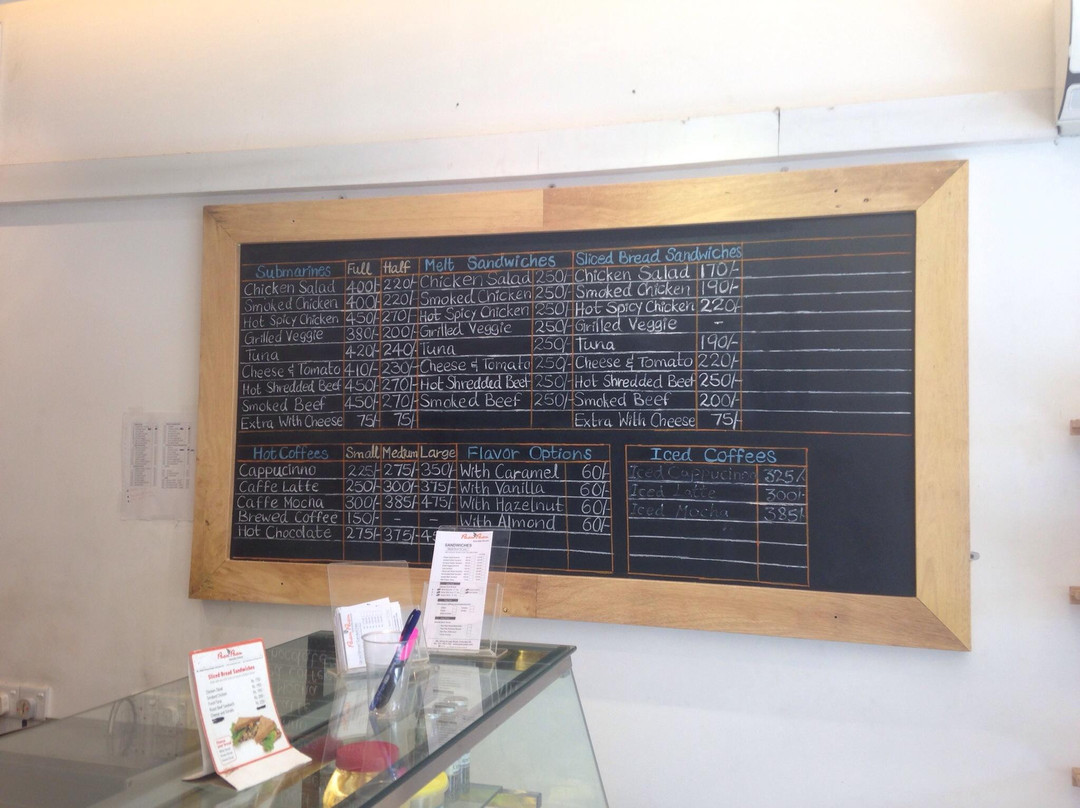 Submarines Full Half Melt Sandwiches Sliced Bread Sandwiches
Chicken Salad 400/- 220/- Chicken Salad 250/- Chicken Salad 170/-
Smoked Chicken 400/- 220/- Smoked Chicken 250/- Smoked Chicken 190/-
Hot Spicy Chicken 450/- 270/- Hot Spicy Chicken 250/- Hot Spicy Chicken 220/-
Grilled Veggie 380/- 200/- Grilled Veggie 250/- Grilled Veggie -
Tuna 420/- 240/- Tuna 250/- Tuna 190/-
Cheese & Tomato 410/- 230/- Cheese & Tomato 250/- Cheese & Tomato 220/-
Hot Shredded Beef 450/- 270/- Hot Shredded Beef 250/- Hot Shredded Beef 250/-
Smoked Beef 450/- 270/- Smoked Beef 250/- Smoked Beef 200/-
Extra With Cheese 75/- 75/- Extra With Cheese 75/-
Hot Coffees Small Medium Large Flavor Options Iced Coffees
Cappucinno 225/- 275/- 350/- With Caramel 60/- Iced Cappucinno 325/-
Caffe Latte 250/- 300/- 375/- With Vanilla 60/- Iced Latte 300/-
Caffe Mocha 300/- 385/- 475/- With Hazelnut 60/- Iced Mocha 385/-
Brewed Coffee 150/- - - With Almond 60/-
Hot Chocolate 275/- 375/-
SANDWICHES
Sliced Bread Sandwiches